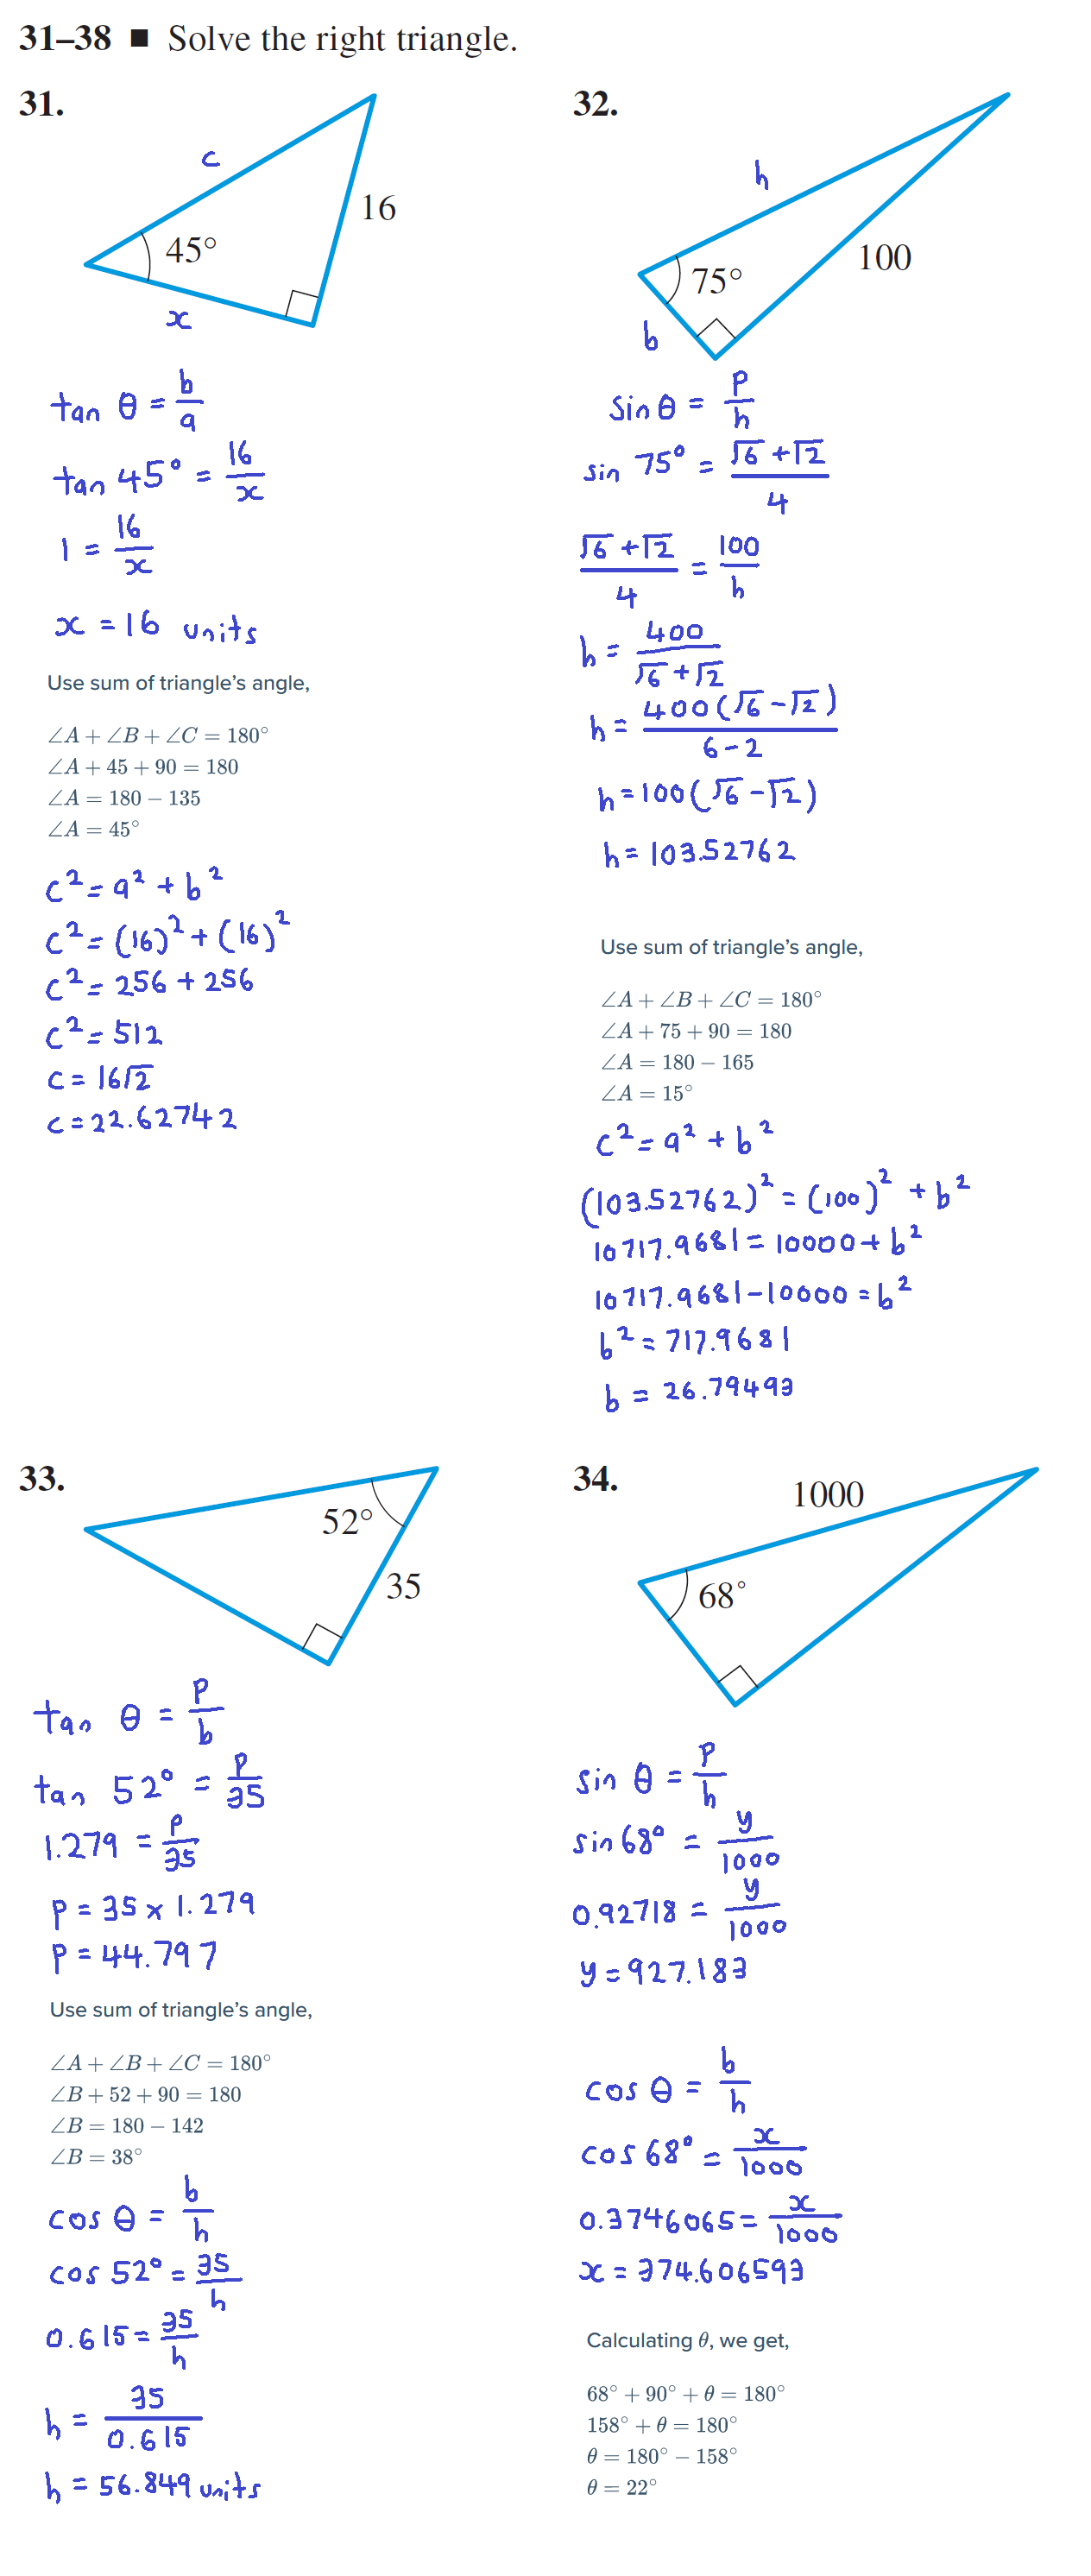 31–38 ■ Solve the right triangle.
31.
c
16
45°
x
tan θ = b/a
tan 45° = 16/x
1 = 16/x
x = 16 units
Use sum of triangle's angle,
∠A + ∠B + ∠C = 180°
∠A + 45 + 90 = 180
∠A = 180 − 135
∠A = 45°
c² = a² + b²
c² = (16)² + (16)²
c² = 256 + 256
c² = 512
c = 16√2
c = 22.62742
32.
h
100
75°
b
sin θ = p/h
sin 75° = (√6 + √2)/4
(√6 + √2)/4 = 100/h
h = 400/(√6 + √2)
h = 400(√6 − √2)/(6 − 2)
h = 100(√6 − √2)
h = 103.52762
Use sum of triangle's angle,
∠A + ∠B + ∠C = 180°
∠A + 75 + 90 = 180
∠A = 180 − 165
∠A = 15°
c² = a² + b²
(103.52762)² = (100)² + b²
10717.9681 = 10000 + b²
10717.9681 − 10000 = b²
b² = 717.9681
b = 26.79493
33.
52°
35
tan θ = p/b
tan 52° = p/35
1.279 = p/35
p = 35 × 1.279
p = 44.797
Use sum of triangle's angle,
∠A + ∠B + ∠C = 180°
∠B + 52 + 90 = 180
∠B = 180 − 142
∠B = 38°
cos θ = b/h
cos 52° = 35/h
0.615 = 35/h
h = 35/0.615
h = 56.849 units
34.
1000
68°
sin θ = p/h
sin 68° = y/1000
0.92718 = y/1000
y = 927.183
cos θ = b/h
cos 68° = x/1000
0.3746065 = x/1000
x = 374.606593
Calculating θ, we get,
68° + 90° + θ = 180°
158° + θ = 180°
θ = 180° − 158°
θ = 22°